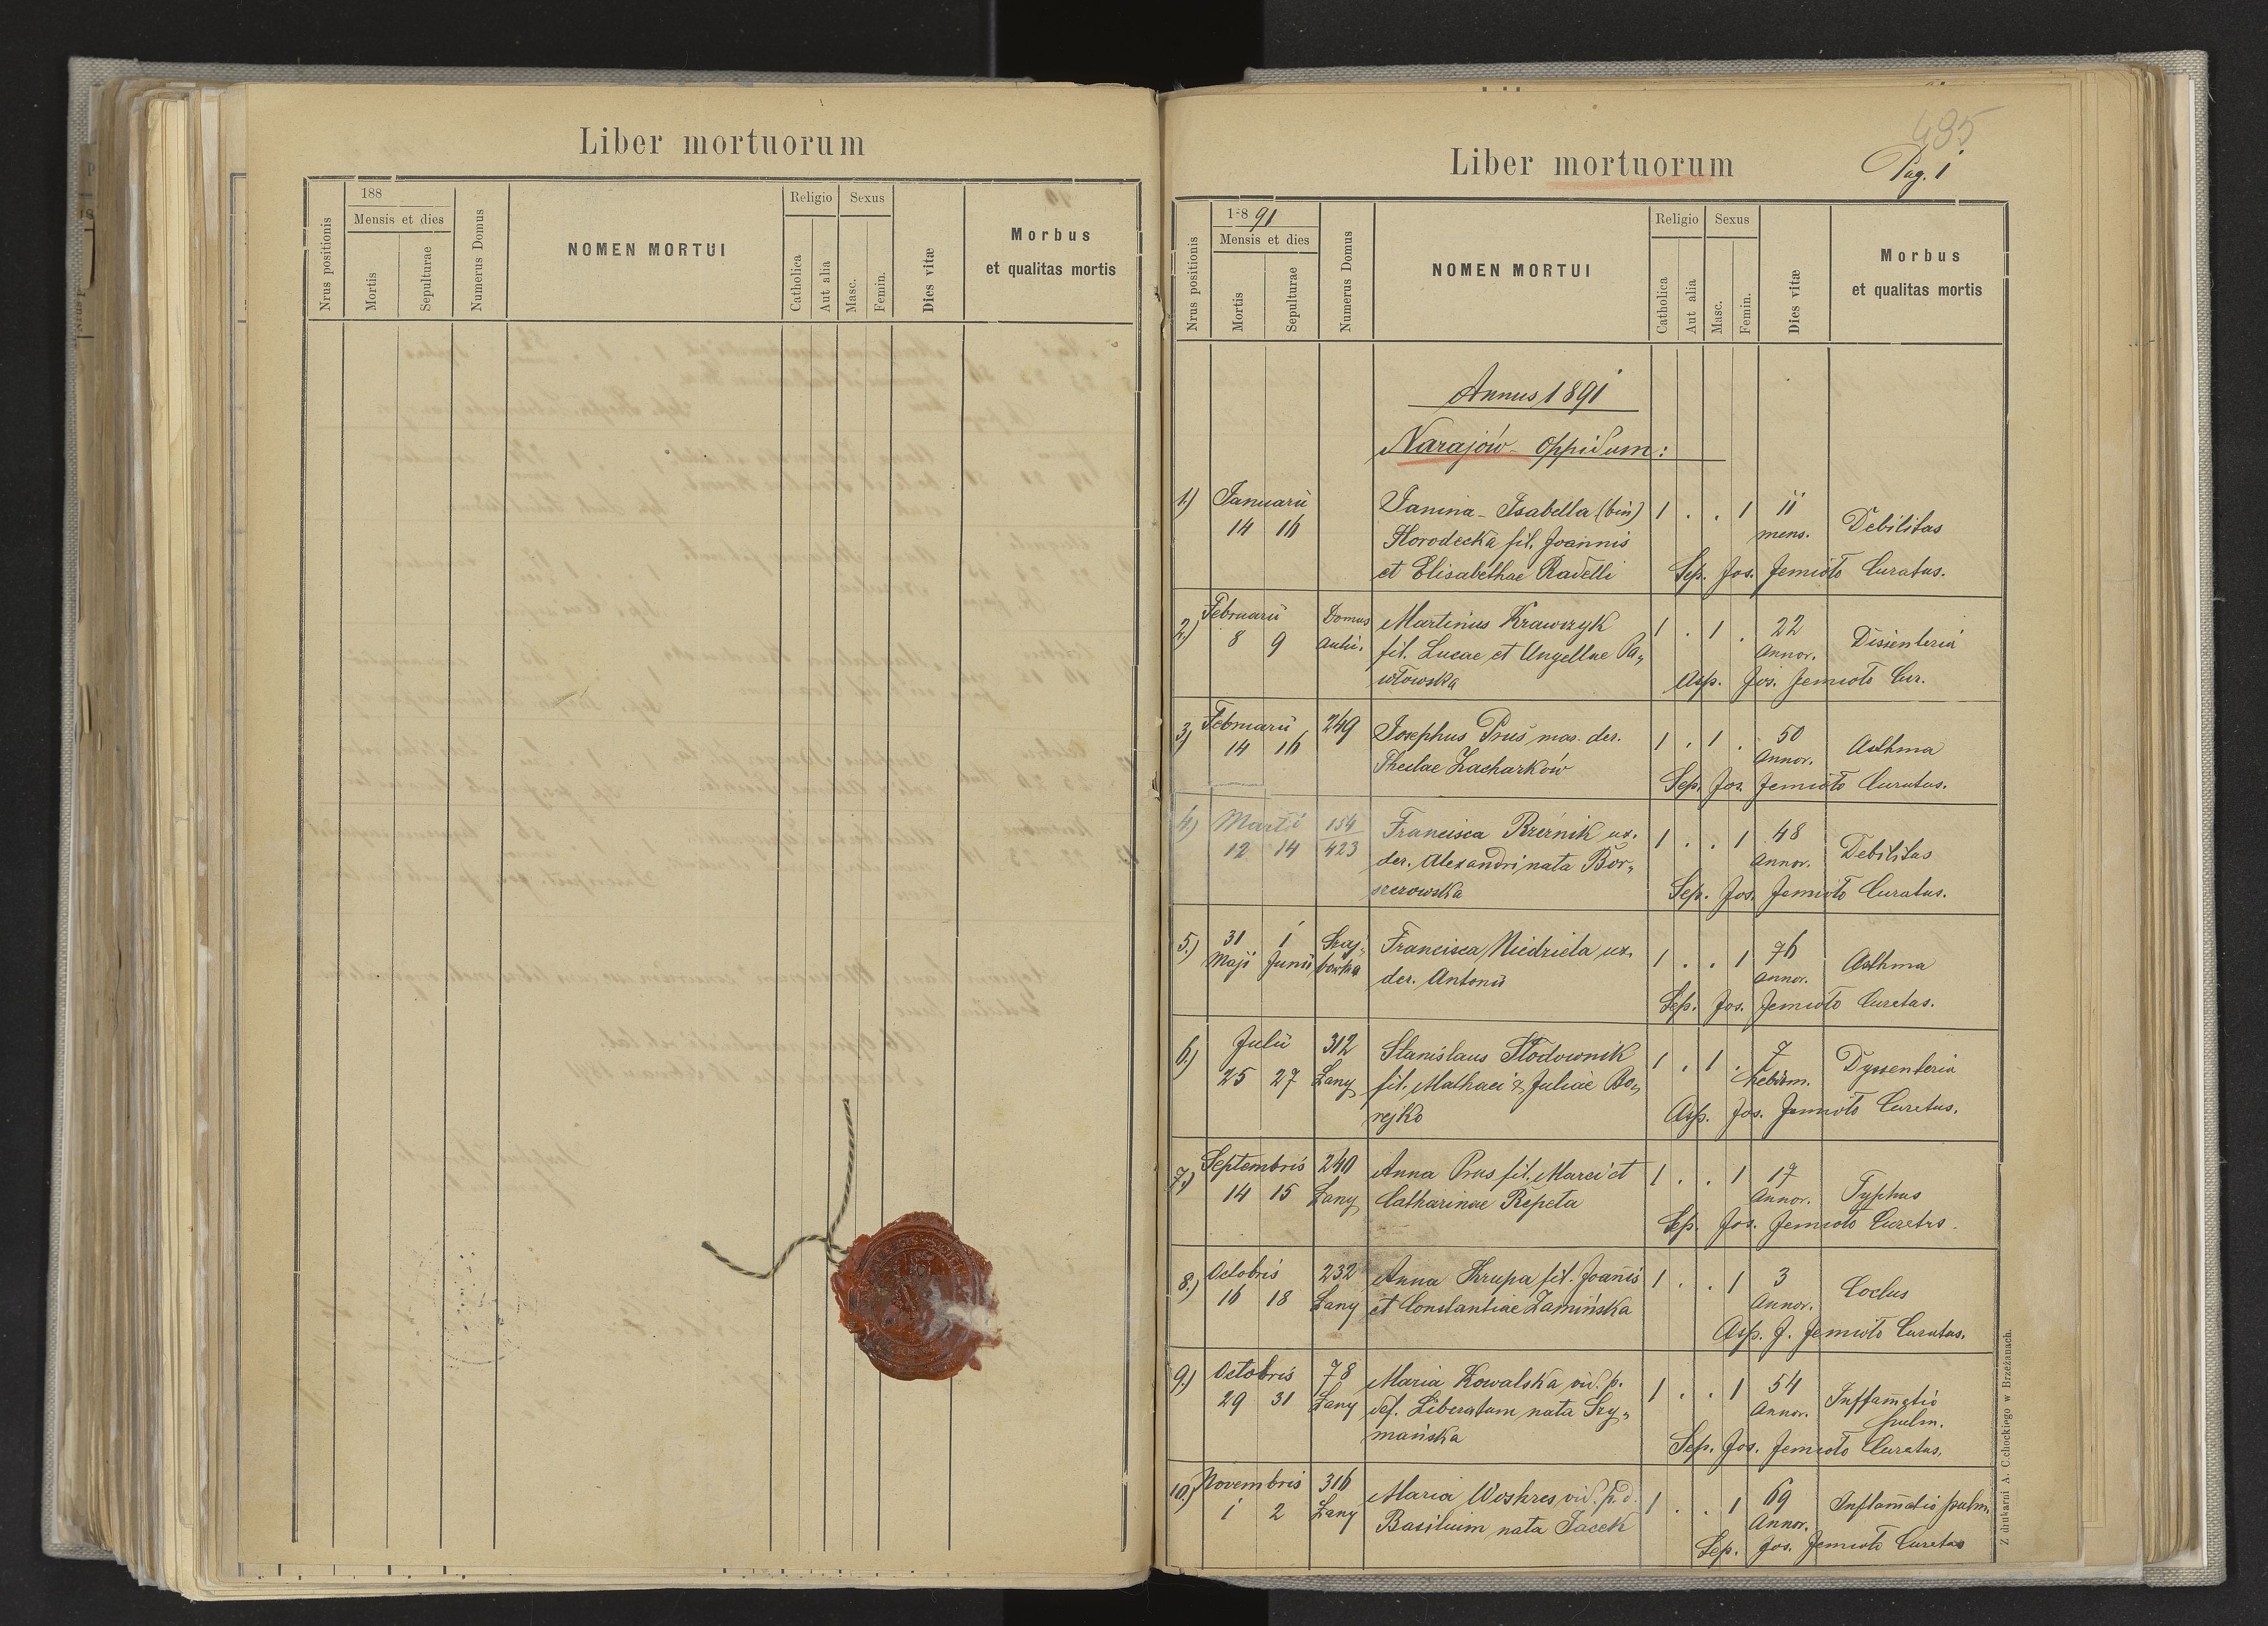 Liber mortuorum
188
Mensis et dies
Nrus positionis
Mortis
Sepulturae
Numerus Domus
NOMEN MORTUI
Religio
Sexus
Catholica
Aut alia
Masc.
Femin.
Dies vitæ
Morbus
et qualitas mortis
495
Pag. 1
Liber mortuorum
1-8 91
Mensis et dies
Nrus positionis
Mortis
Sepulturae
Numerus Domus
NOMEN MORTUI
Religio
Sexus
Catholica
Aut alia
Masc.
Femin.
Dies vitæ
Morbus
et qualitas mortis
Annus 1891
Narajów - Oppidum:
1.) Januarii Janina - Isabella (bin) 1 . . 1 11
14 16 Horodecka fil. Joannis mens. Debilitas
et Elisabethae Radelli Sep. Jos. Jemioło Curatus.
2.) Februarii Domus Martinus Krawczyk 1 . 1 . 22
8 9 fil. Lucae et Angellae Pa„ Annor. Dissenteria
włowska Asp. Jos. Jemioło Cur.
3.) Februarii 249 Josephus Pruś mar. der. 1 . 1 . 50
14 16 Theclae Zacharków Annor. Asthma
Sep. Jos. Jemioło Curatus.
4.) Martii 154 Francisca Brzeźnik ux. 1 . . 1 48
12 14 423 der. Alexandri nata Bor„ Annor. Debilitas
szczowska Sep. Jos. Jemioło Curatus.
5.) 31 1 Francisca Niedziela ux. 1 . . 1 76
Maji Junii der. Antonii Annor. Asthma
Sep. Jos. Jemioło Curatus.
6.) Julii 312 Stanislaus Słodownik 1 . 1 . 7
25 27 Łany fil. Mathaei & Juliae Bo„ hebdm. Dyssenteria
rejko Asp. Jos. Jemioło Curatus.
7.) Septembris 240 Anna Prus fil. Marci et 1 . . 1 17
14 15 Łany Catharinae Rzepeta Annor. Typhus
Sep. Jos. Jemioło Curatus.
8.) Octobris 232 Anna Krupa fil. Joañis 1 . . 1 3
16 18 Łany et Constantiae Zamińska Annor. Coclus
Asp. J. Jemioło Curatus.
9.) Octobris 78 Maria Kowalska vid. p. 1 . . 1 54
29 31 Łany def. Liberatum nata Szy„ Annor. Inflam̃atio
mańska pulm.
Sep. Jos. Jemioło Curatus.
10.) Novembris 316 Maria Woskres vid. p. d. 1 . . 1 69
1 2 Łany Basilium nata Jacek Annor. Inflam̃atio pulm.
Sep. Jos. Jemioło Curatus
Z drukarni A. Cichockiego w Brzeżanach.